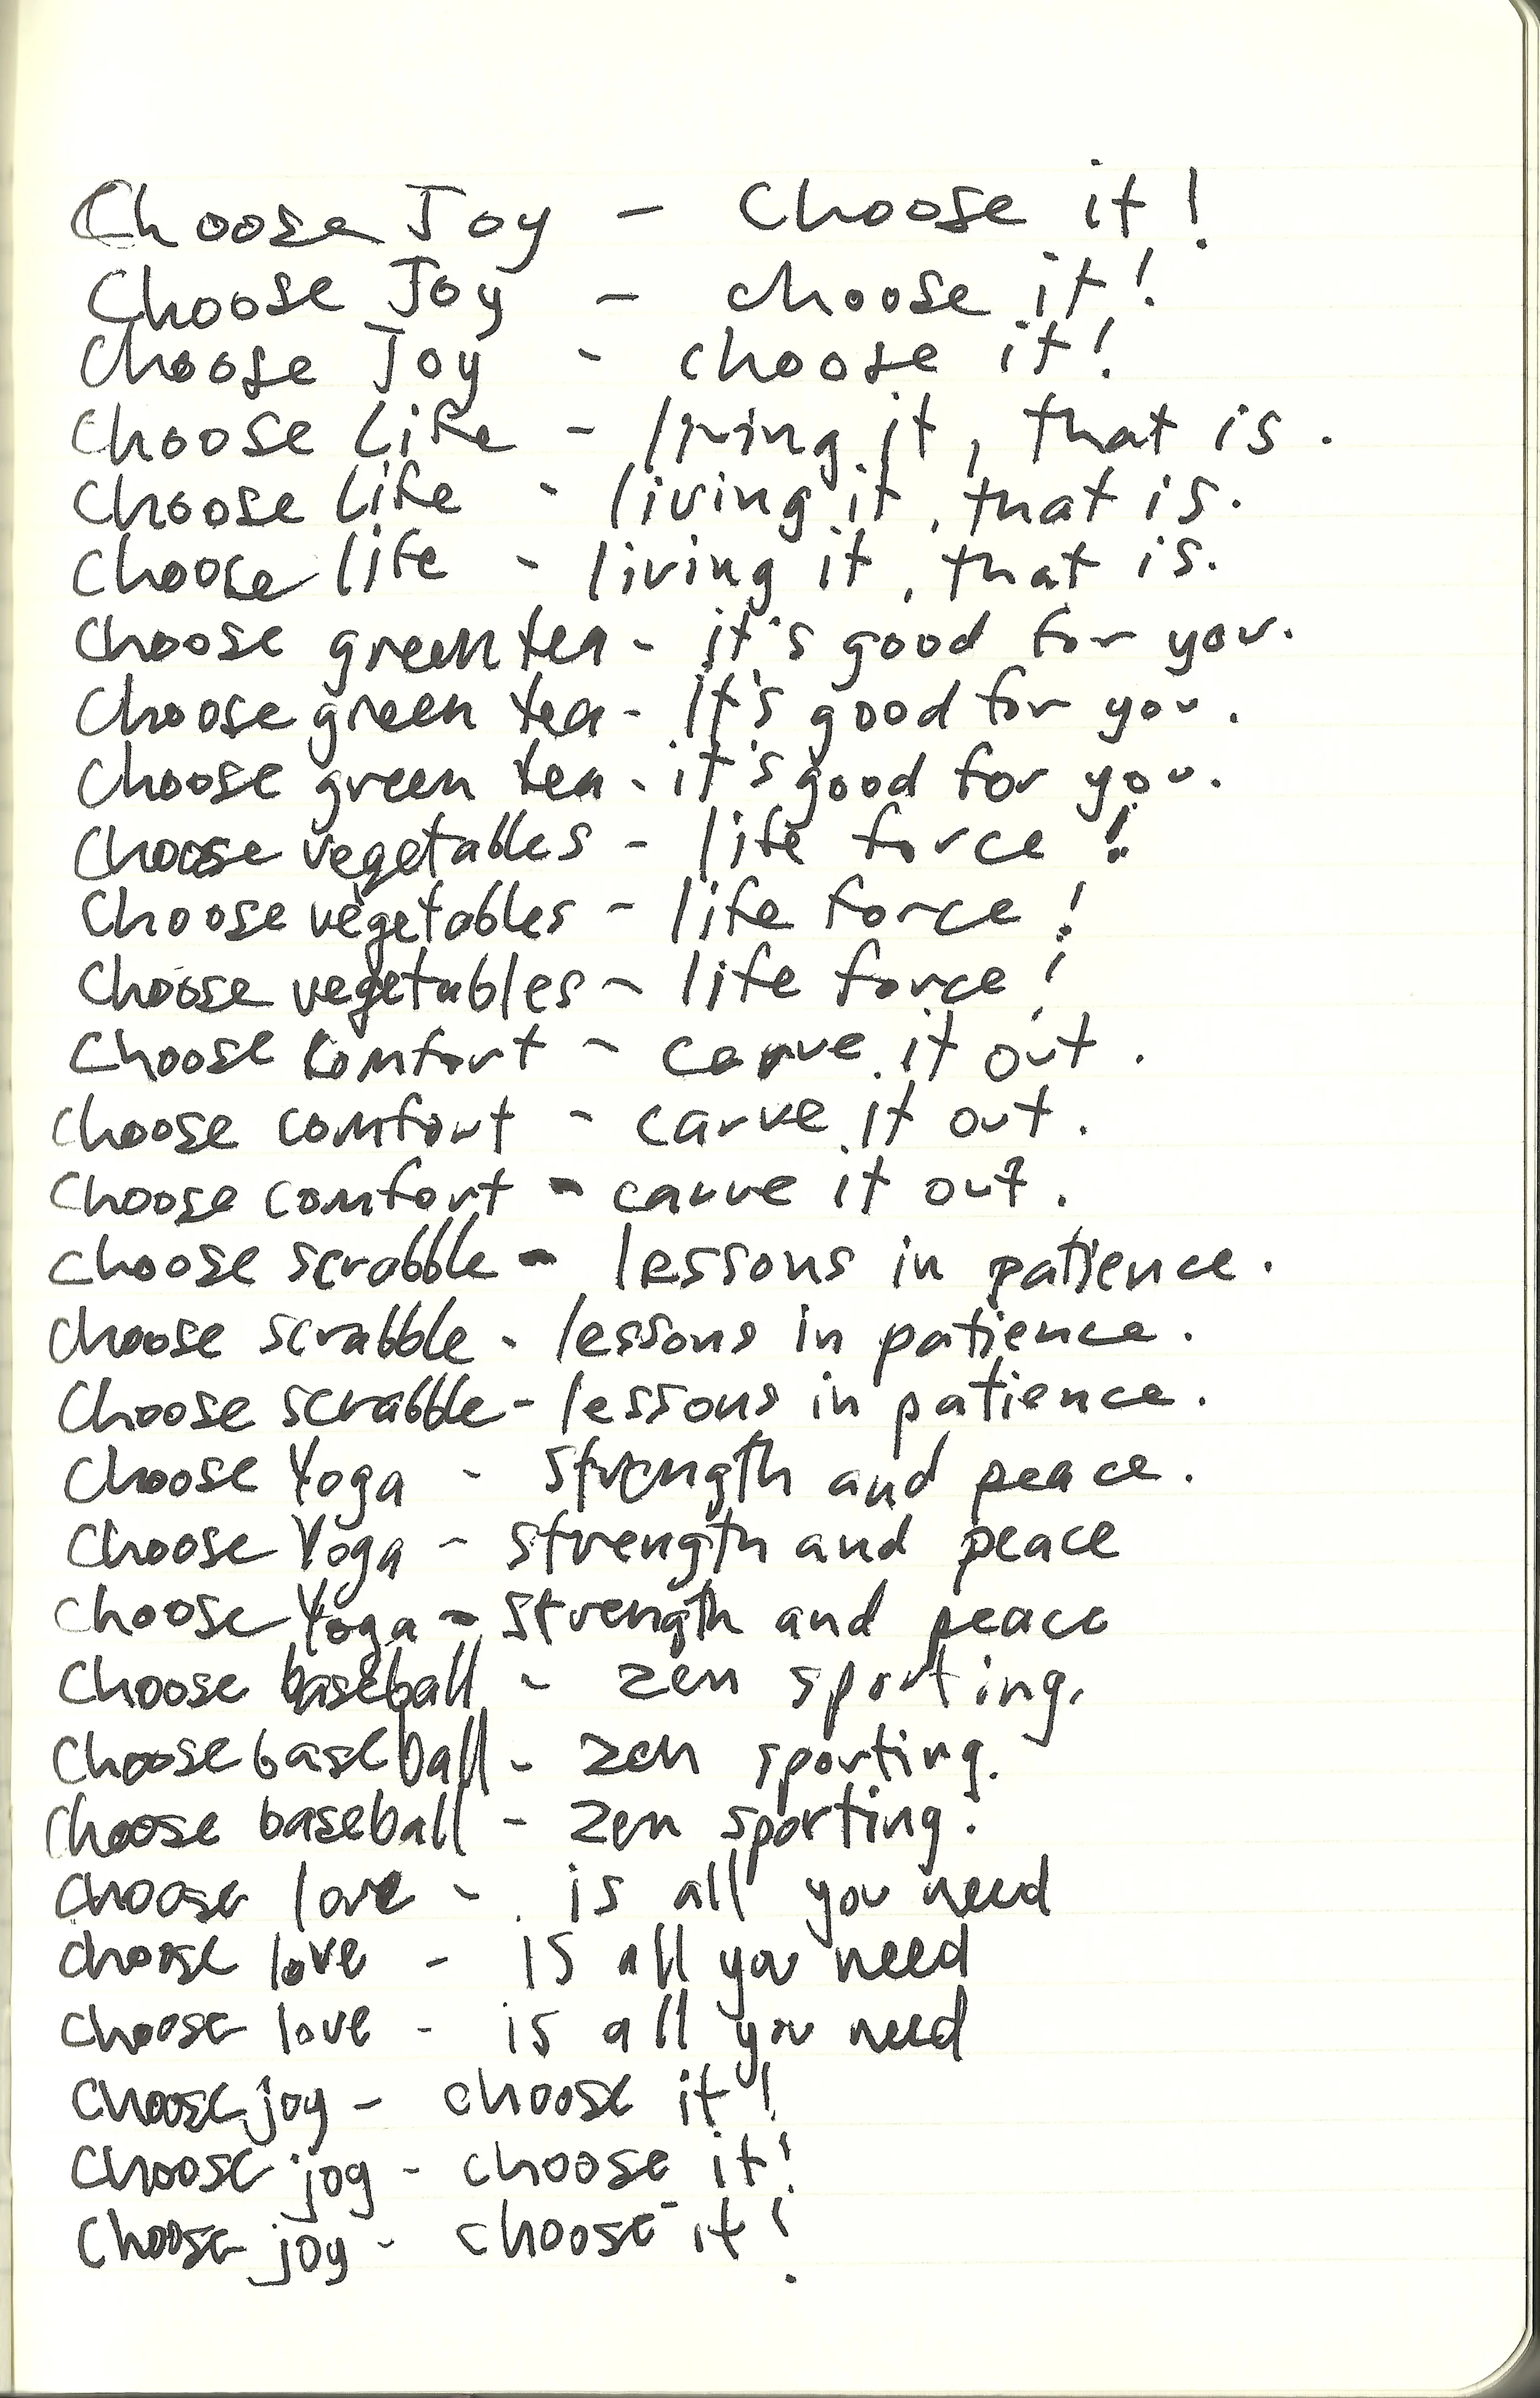 Choose Joy - Choose it!
Choose Joy - choose it!
Choose Joy - choose it!
Choose Life - living it, that is.
Choose Life - living it, that is.
Choose life - living it, that is.
Choose green tea - it's good for you.
Choose green tea - it's good for you.
Choose green tea - it's good for you.
Choose vegetables - life force!
Choose vegetables - life force!
Choose vegetables - life force!
Choose comfort - carve it out.
Choose comfort - carve it out.
Choose comfort - carve it out.
Choose scrabble - lessons in patience.
Choose scrabble - lessons in patience.
Choose scrabble - lessons in patience.
Choose Yoga - strength and peace.
Choose Yoga - strength and peace
Choose Yoga - strength and peace
Choose baseball - zen sporting.
Choose baseball - zen sporting.
Choose baseball - zen sporting.
Choose love - is all you need
Choose love - is all you need
Choose love - is all you need
Choose joy - choose it!
Choose joy - choose it!
Choose joy - choose it!